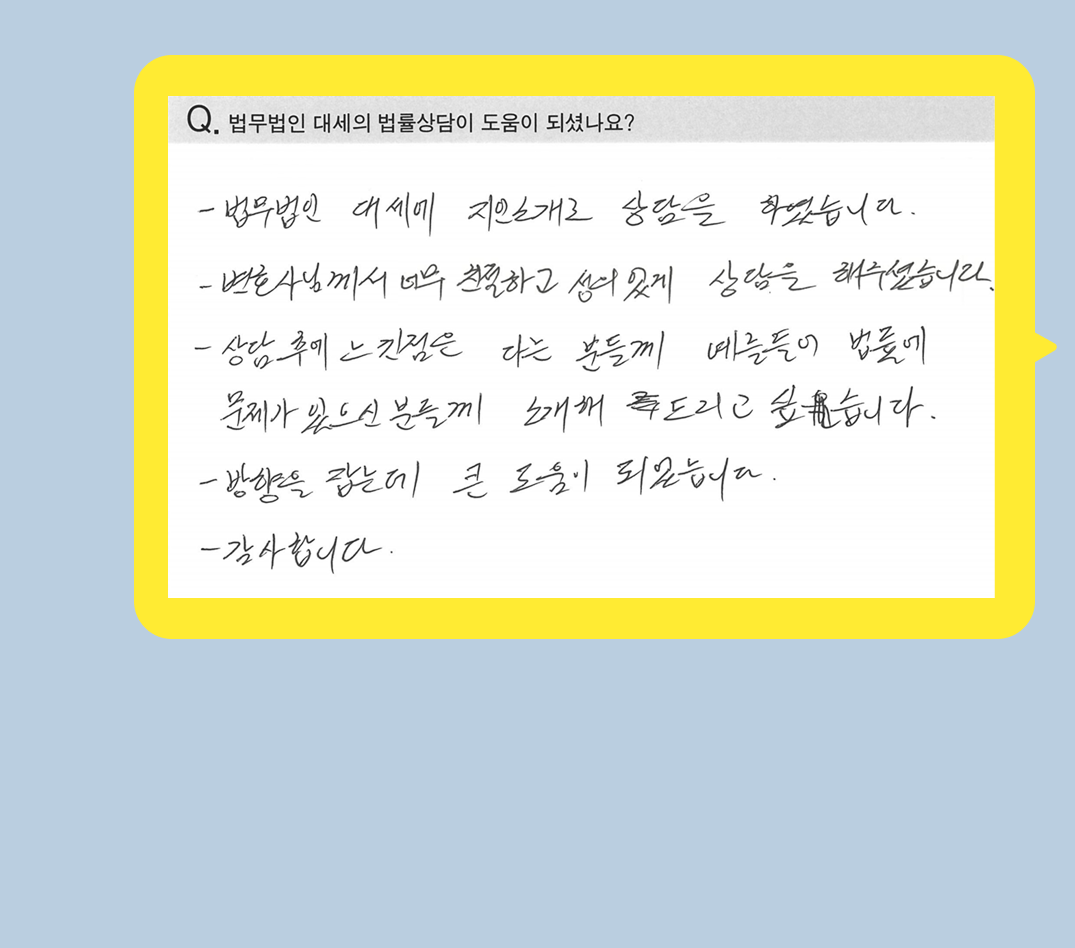 Q. 법무법인 대세의 법률상담이 도움이 되셨나요?
- 법무법인 대세에 지인소개로 상담을 하였습니다.
- 변호사님께서 너무 친절하고 성의있게 상담을 해주셨습니다.
- 상담 후에 느낀점은 다른 분들께 예를들어 법률에
문제가 있으신 분들께 소개해 드리고 싶습니다.
- 방향을 잡는데 큰 도움이 되었습니다.
- 감사합니다.